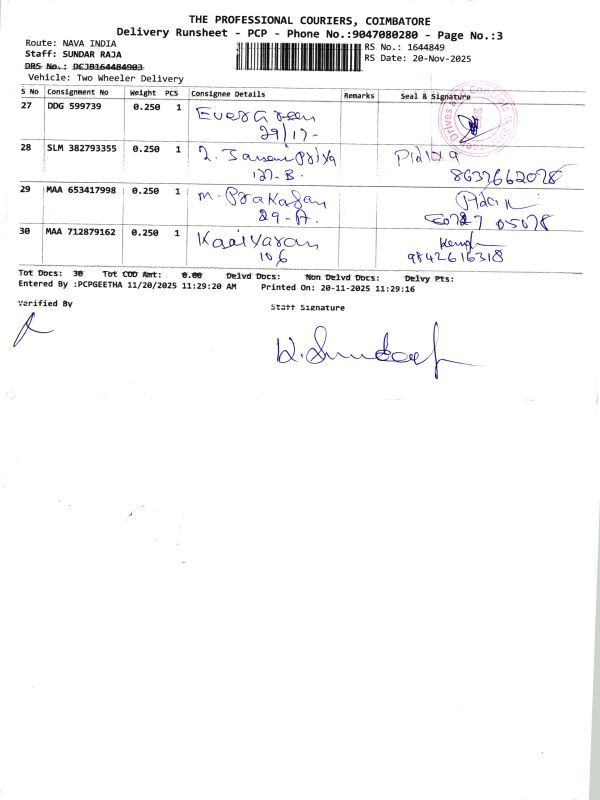 THE PROFESSIONAL COURIERS, COIMBATORE
Delivery Runsheet - PCP - Phone No.:9047080280 - Page No.:3
Route: NAVA INDIA
RS No.: 1644849
Staff: SUNDAR RAJA
RS Date: 20-Nov-2025
DRS No.: DCJB164484903
Vehicle: Two Wheeler Delivery
S No Consignment No Weight PCS Consignee Details Remarks Seal & Signature
27 DDG 599739 0.250 1 EverGreen
29/17-
28 SLM 382793355 0.250 1
127-B.
8637662078
29 MAA 653417998 0.250 1 M. Prakasan
29-A.
30 MAA 712879162 0.250 1
106 9842616318
Tot Docs: 30 Tot COD Amt: 0.00 Delvd Docs: Non Delvd Docs: Delvy Pts:
Entered By :PCPGEETHA 11/20/2025 11:29:20 AM Printed On: 20-11-2025 11:29:16
Verified By
Staff Signature